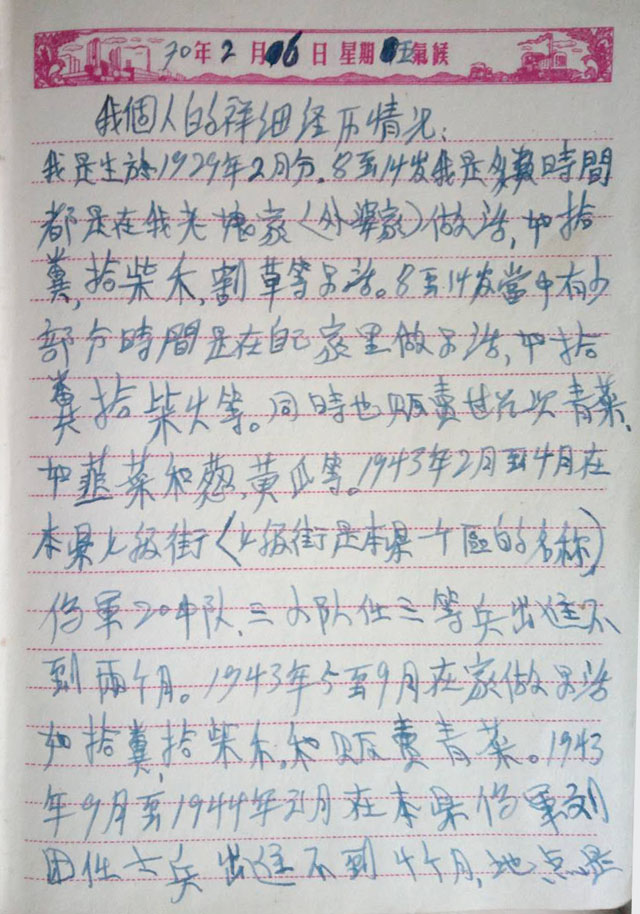 70年2月6日 星期 氣候
我個人的祥细经历情况:
我是生於1929年2月分.8至14岁我是多数時間
都是在我老娘家(外婆家)做活,如拾
糞,拾柴禾,割草等另活。8至14岁當中有少
部分時間是在自己家里做另活,如拾
糞拾柴火等。同時也贩賣过几次青菜、
如韮菜和葱,黃瓜等。1943年2月至4月在
本県上级街(上级街是本県一个區的名称)
伪軍20中队,三小队任三等兵出逃不
到兩个月。1943年5至9月在家做另活
如拾糞,拾柴禾,和贩賣青菜。1943
年9月至1944年2月在本県伪軍
团任士兵出逃不到4个月,地点是